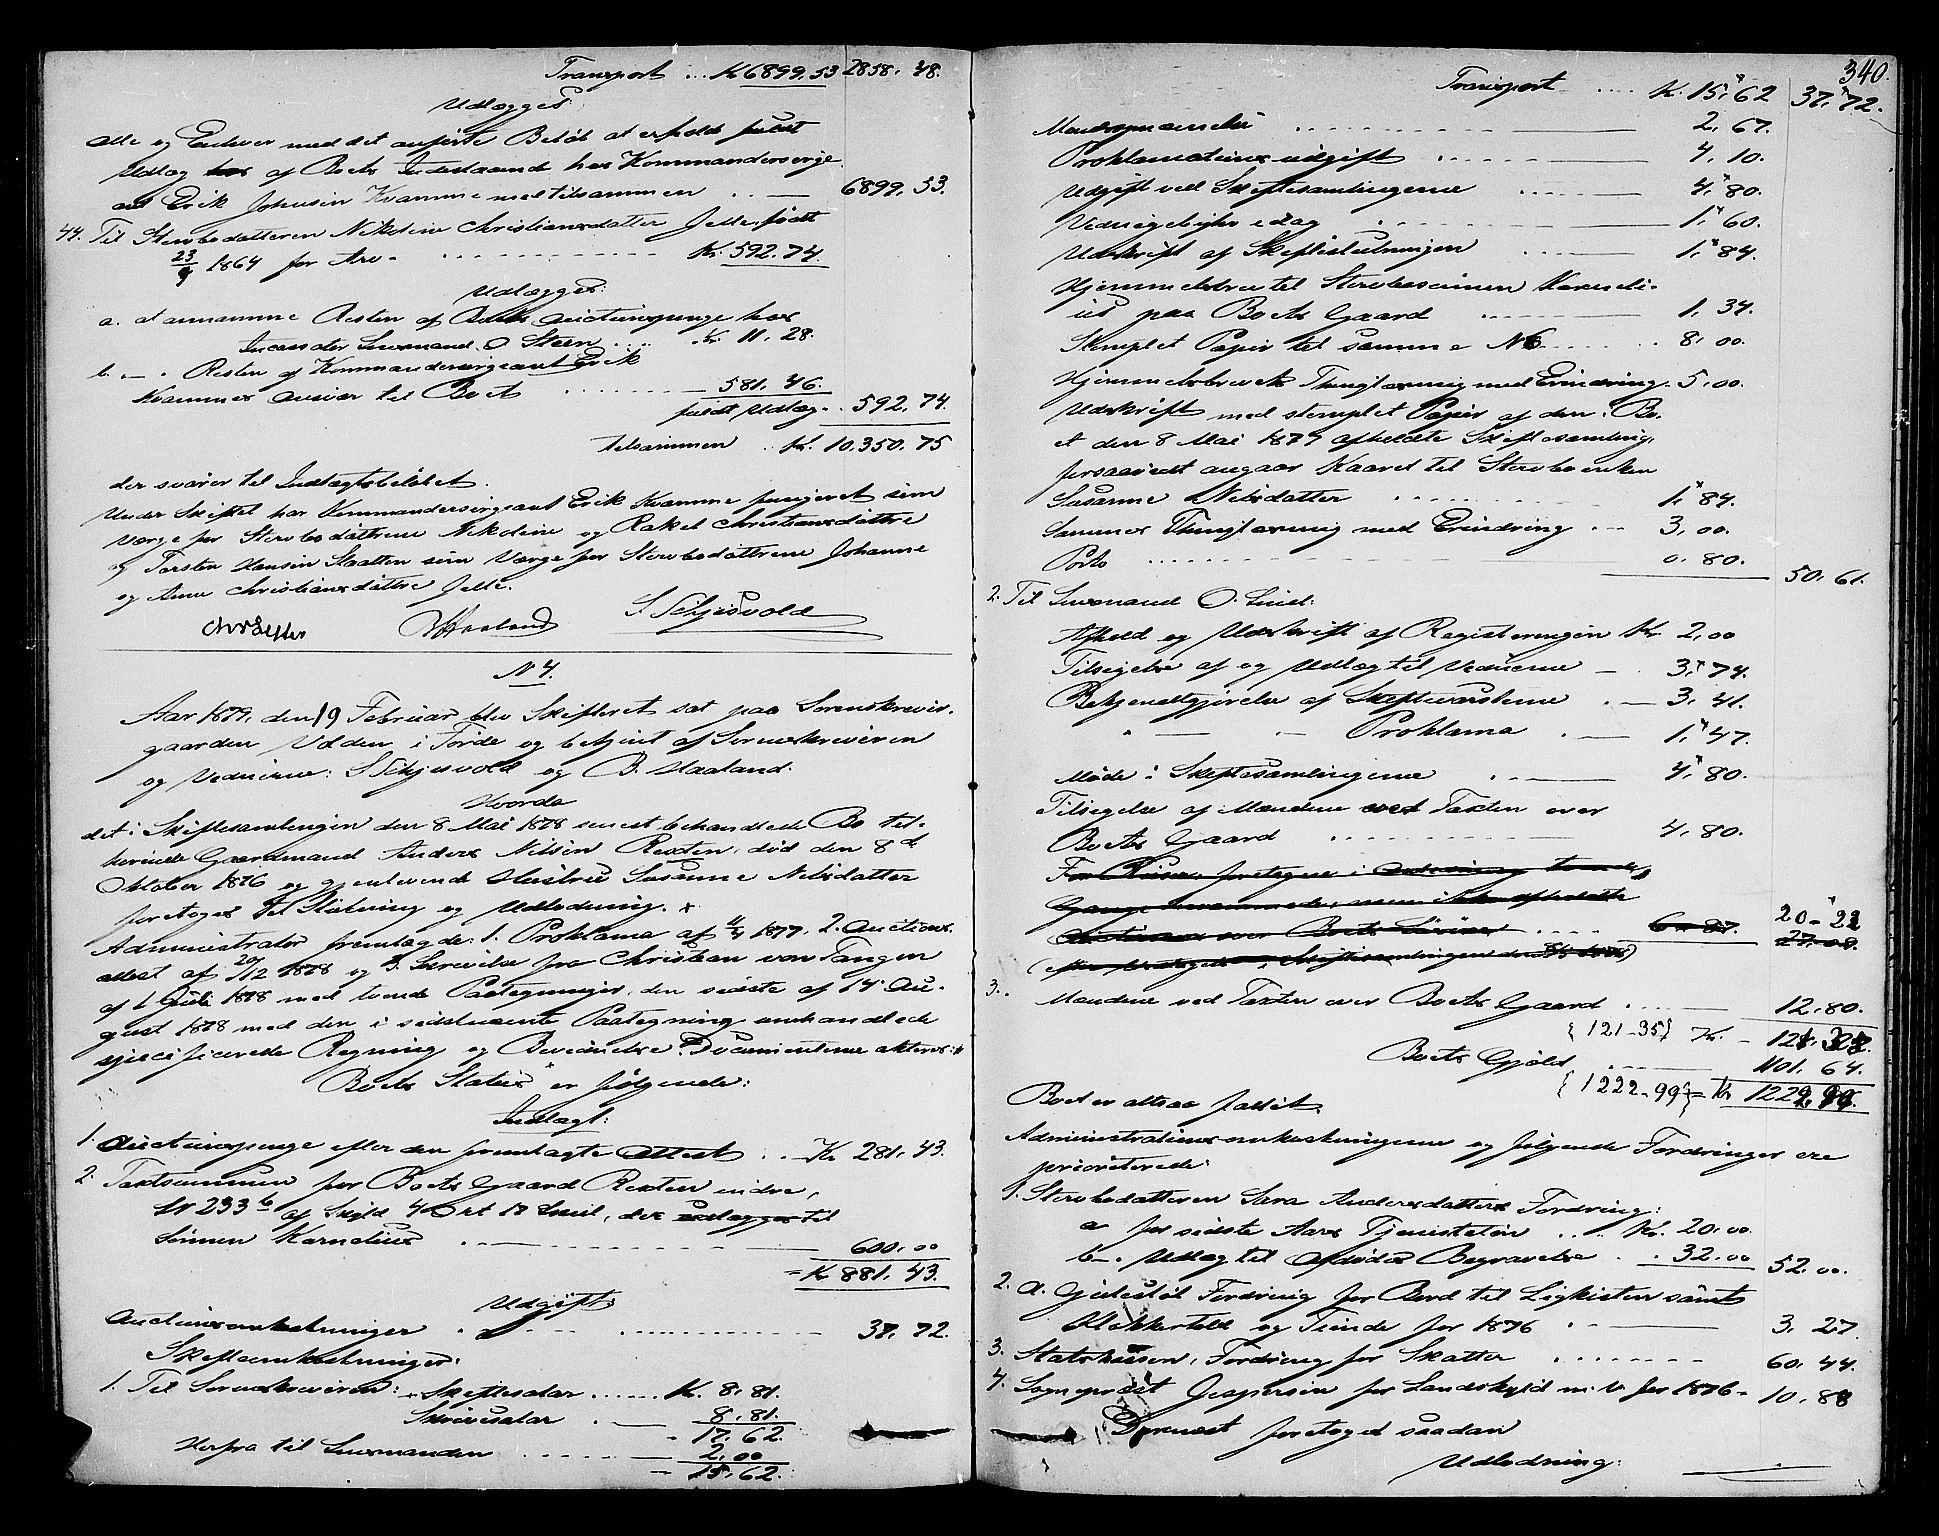 Transport .. K 6899,53 2858. 48.
Udlægges:
Alle og Enhver med det anførte Beløb at erholde fuldt
Udlæg af Boets Indestaaende hos Kommandersergeant
Erik Johnsen Kvamme med tilsammen .. — 6899,53.
44. Til Sterbodatteren Nikoline Christiansdatter Jelle, født
23/9 1864 for Arv — Kr. 592.74.
Udlægges:
a. at annamme Resten af Boets Auctionspenge hos
Lensmand O Steen .... Kr. 11.28.
b. — Resten af Kommandersergeant Erik
Kvammes Ansvar til Boet — 581.46.
fuldt Udlæg .. 592,74.
tilsammen .. Kr. 10.350.75
der svarer til Indtægtsbeløbet.
Under Skiftet har Kommandersergeant Erik Kvamme fungeret som
Værge for Sterbodøttrene Nikoline og Rakel Christiansdøttre
og Torsten Hansen Staatten som Værge for Sterbodøttrene Johanne
og Anne Christiansdøttre Jelle.
BHaaland S. Schjesvold
N 4.
Aar 1879, den 19 Februar blev Skifteret sat paa Sorenskriver-
gaarden Volden i Førde og betjent af Sorenskriveren
og Vidnerne: S Schjesvold og B. Haaland.
Hvorda
det i Skiftesamlingen den 8 Mai 1878 senest behandlede Bo til-
hørende Gaardmand Anders Nilsen Rexten, død den 8de
Oktober 1876 og gjenlevende Hustru Susanne Nilsdatter
foretoges til Slutning og Udlodning.
Administrator fremlagde: 1. Proklama af 11/4 1877, 2. Auctions-
attest af 20/12 1878 og 3. Skrivelse fra Christian von Tangen
af 1 Juli 1878 med tvende Paategninger, den sidste af 14 Au-
gust 1878 med den i sidstnævnte Paategning omhandlede
specificerede Regning og Bevidnelse. Documenterne akteres.
Boets Status er følgende:
Indtægt:
1. Auctionspenge efter den fremlagte Attest .. Kr 281,43.
2. Taxtsummen for Boets Gaard Rexten indre,
N 233 b af Skyld 4 Ort 18 Skill, der udlægges til
Sønnen Kornelius — 600,00
= K 881,43.
Udgift:
Auctionsomkostninger — 37,72.
Skifteomkostninger:
1. Til Sorenskriveren: Skiftesalar ..... K. 8,81.
Skriversalar — 8,81.
17,62
Herfra til Lensmanden — 2,00
— 15,62.
340.
Transport .... K. 15,62 37,72.
2,67.
Proklamations udgift — 4,10.
Udgift ved Skiftesamlingerne — 4,80.
Vidnegebyhr idag — 1,60.
Udskrift af Skifteslutningen — 1,84.
Hjemmelsbrev til Sterbosønnen Korneli-
us paa Boets Gaard — 1,34.
Stemplet Papir til samme N 6 — 8,00.
Hjemmelsbrevets Thinglæsning med Erindring. 5,00.
Udskrift med stemplet Papir af den i Bo-
et den 8 Mai 1877 afholdte Skiftesamling,
forsaavidt angaar Kaaret til Sterboenken
Susanne Nilsdatter — 1,84.
Sammes Thinglæsning med Erindring — 3,00.
Porto — 0,80. 50,61.
2. Til Lensmand O. Lind:
Afhold og Udskrift af Registreringen Kr. 2,00
Tilsigelse af og Udlæg til Vidnerne — 3,74.
Bekjendtgjørelse af Skiftevarslerne — 3,41.
" — " — Proklama — 1,47.
Møde i Skiftesamlingerne — 4,80.
Tilsigelse af Mændene ved Taxten over
Boets Gaard — 4,80.
Auctioner over Boets Løsøre .... 6-87. 20-22
27,09.
3. Mændene ved Taxten over Boets Gaard — 12,80.
{121-35} Kr. —
Boets Gjæld — 1101,64.
{1222-99} = Kr 1222,99.
Boet er altsaa fallit.
Administrationsomkostningerne og følgende Fordringer ere
prioriterede:
1. Sterbodatteren Sara Andersdatters Fordring:
a for sidste Aars Tjenesteløn ... Kr. 20,00
b — Udlæg til Afdødes Begravelse .. 32,00 52,00.
2. A. Gjelestøl Fordring for Bord til Ligkisten samt
Klokkertold og Tiende for 1876 — 3,27
3. Statskassen, Fordring for Skatter — 60,44.
4. Sogneprest Jespersen for Landskyld m. v. for 1876 — 10,88
Dernæst foretoges saadan
Udlodning: